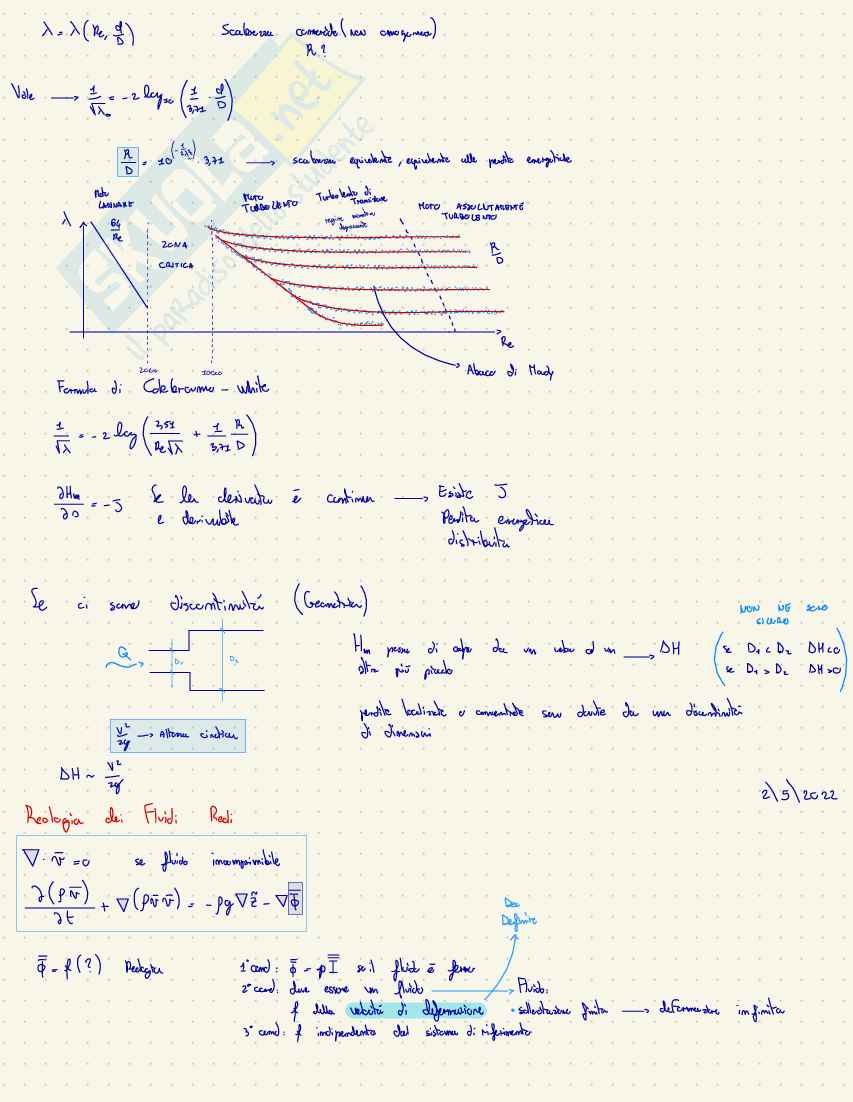 λ = λ(Re, d/D) Scabrezza commerciale (non omogenea)
R?
Vale → 1/√λ₀ = -2 log₁₀ (1/3,71 · d/D)
R/D = 10^(-1/2√λ) · 3,71 → scabrezza equivalente, equivalente alle perdite energetiche
Moto LAMINARE
MOTO TURBOLENTO
Turbolento di Transizione
MOTO ASSOLUTAMENTE TURBOLENTO
λ
64/Re
ZONA CRITICA
R/D
Re
2000
Abaco di Moody
Formula di Colebrooke - White
1/√λ = -2 log (2,51/Re√λ + 1/3,71 R/D)
∂Hm/∂s = -J Se la derivata è continua → Esiste J
e derivabile Perdita energetica
distribuita
Se ci sono discontinuità (Geometria)
NON NE SONO SICURO
Q D₁ D₂
Hm prima di capo da un valore ad un → ΔH
altro più piccolo
se D₁ < D₂ ΔH<0
se D₁ > D₂ ΔH>0
perdite localizzate o concentrate sono dovute da una discontinuità
di dimensioni
V²/2g → Altezza cinetica
ΔH ~ V²/2g
2\5\2022
Reologia dei Fluidi Reali
∇ · v̄ = 0 se fluido incomprimibile
∂(ρv̄)/∂t + ∇(ρv̄v̄) = -ρg∇z̃ - ∇Φ̿
Da Definire
Φ̿ = f(?) Reologia
1° cond: Φ̿ = pI̿ se il fluido è fermo
2° cond: deve essere un fluido → Fluido:
f della velocità di deformazione • sollecitazione finita → deformazione infinita
3° cond: f indipendente dal sistema di riferimento
SKUOLA.net
il paradiso dello studente